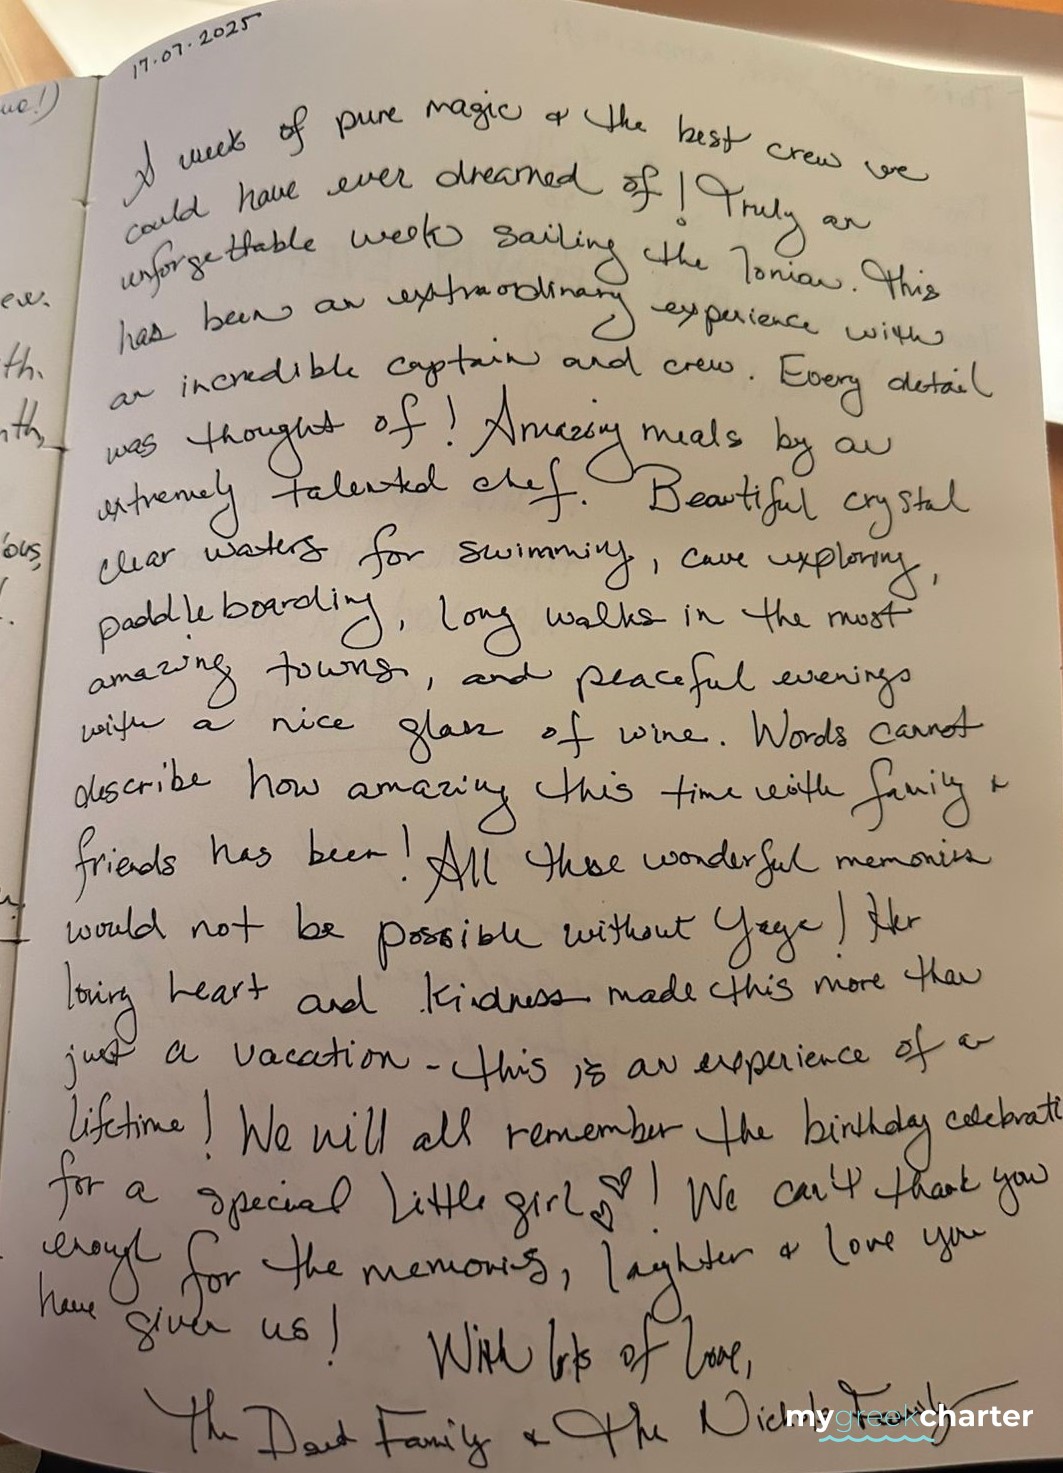 17.07.2025
A week of pure magic & the best crew we
could have ever dreamed of! Truly an
unforgettable week sailing the Ionian. This
has been an extraordinary experience with
an incredible captain and crew. Every detail
was thought of! Amazing meals by an
extremely talented chef. Beautiful crystal
clear waters for swimming, cave exploring,
paddleboarding, long walks in the most
amazing towns, and peaceful evenings
with a nice glass of wine. Words cannot
describe how amazing this time with family &
friends has been! All these wonderful memories
would not be possible without Yaya! Her
loving heart and kindness made this more than
just a vacation - this is an experience of a
lifetime! We will all remember the birthday celebrati
for a special little girl! We can't thank you
enough for the memories, laughter & love you
have given us!
With lots of love,
The Family & The Family
mygreekcharter